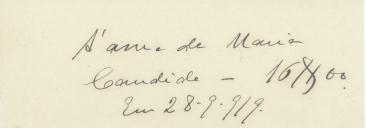 A' ama de Maria
Candide - 16$00.
Em 28-9-919.